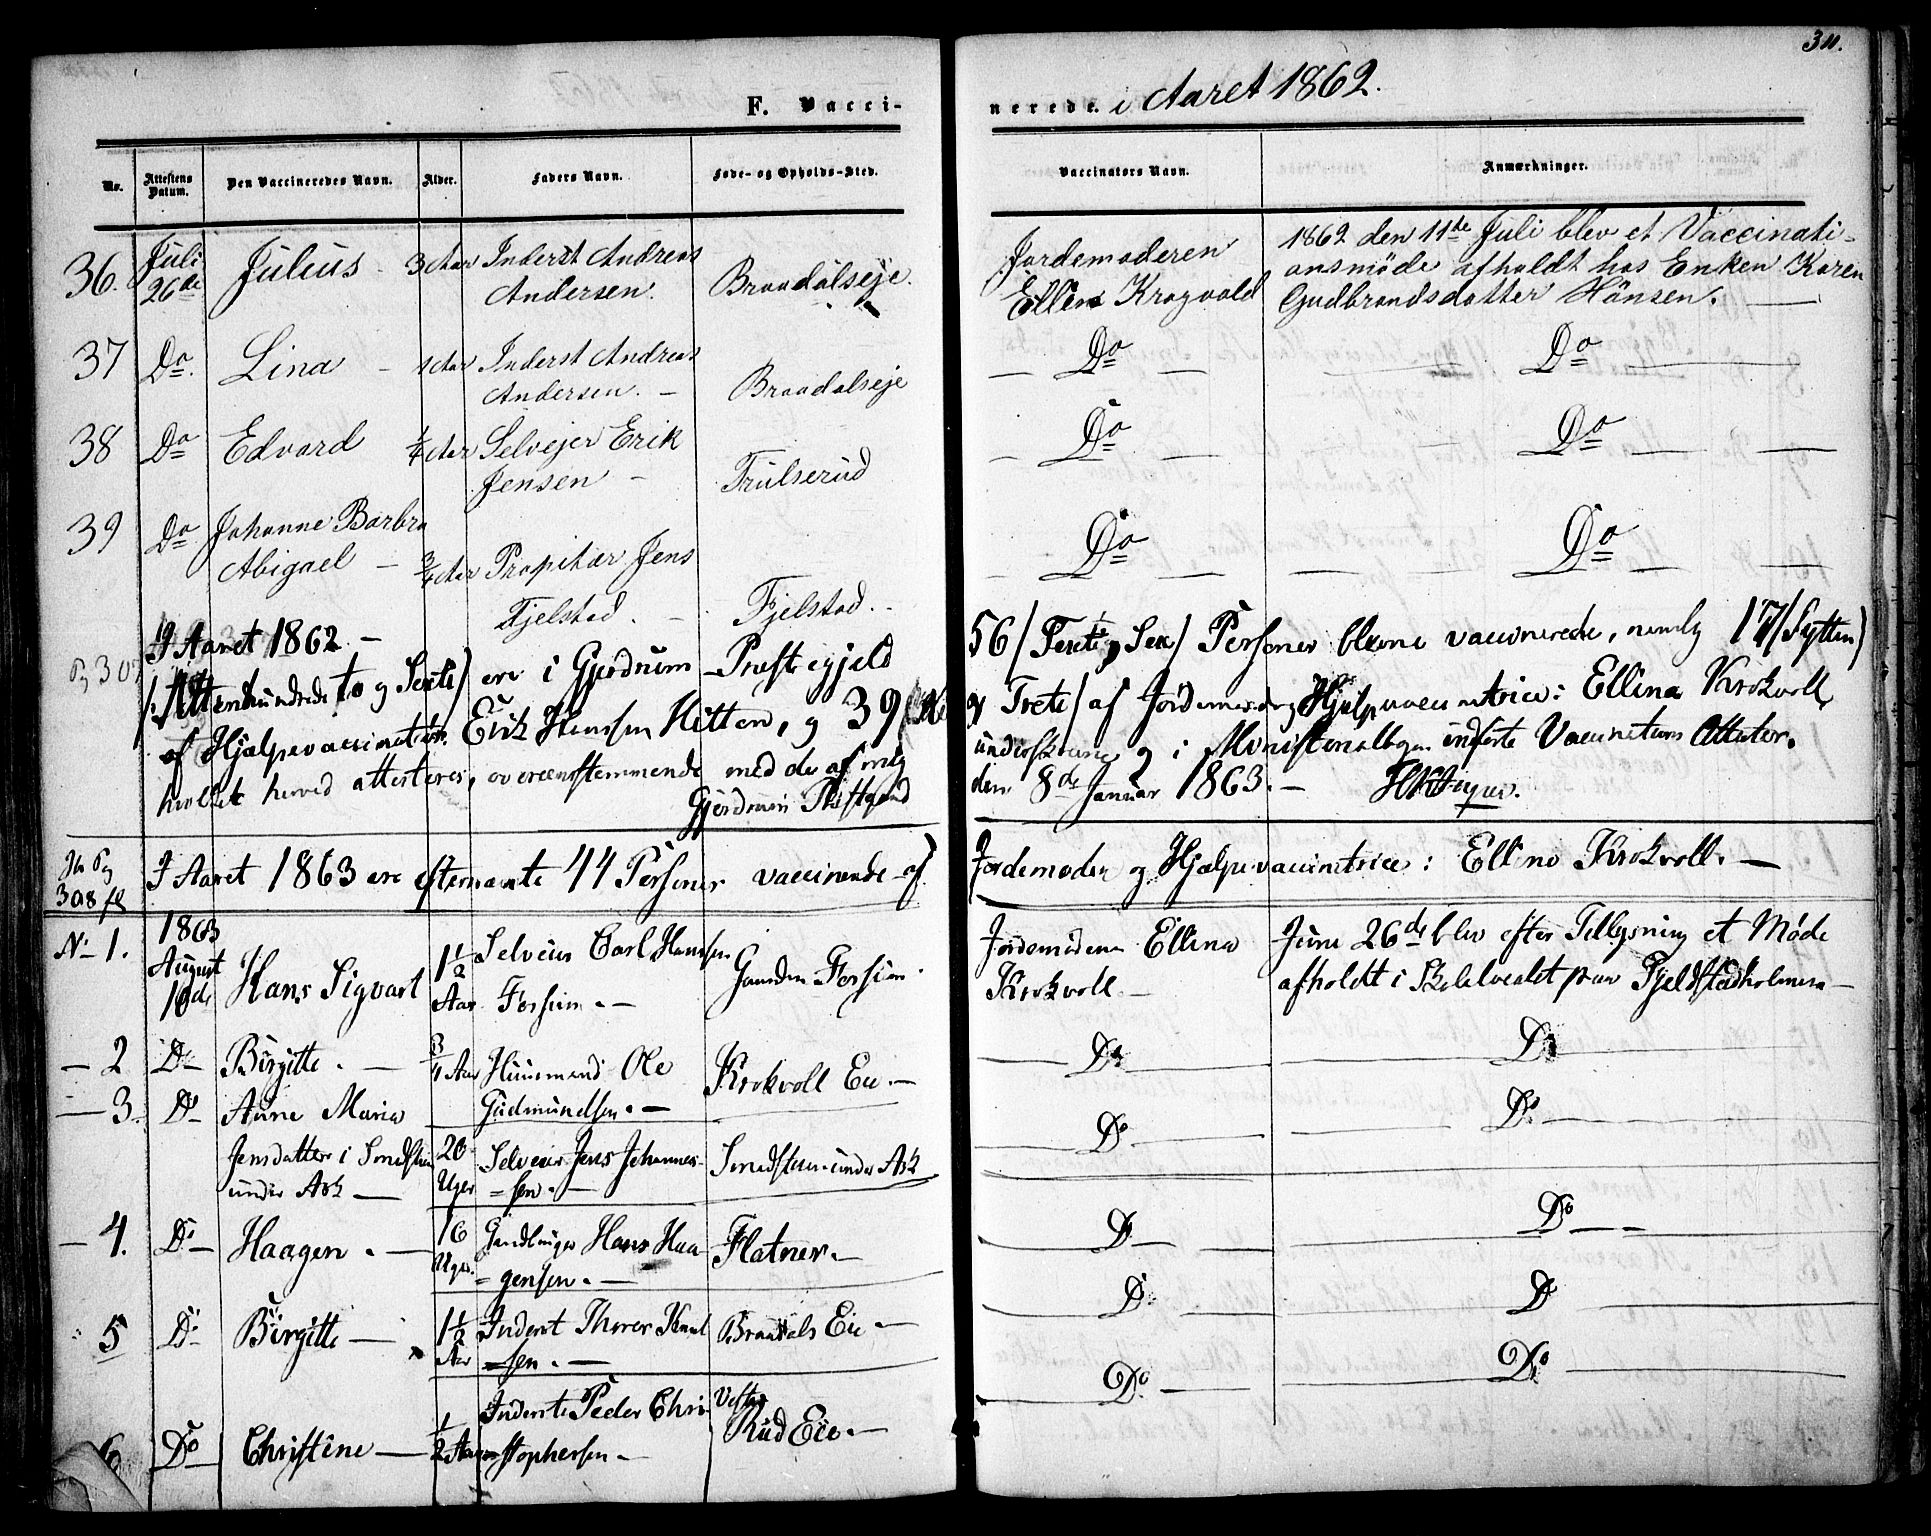 311.
F. Vacci-
nerede. i Aaret 1862.
No. Attestens Datum. Den Vaccineredes Navn. Alder. Faders Navn. Føde- og Opholds-Sted. Vaccinators Navn. Anmærkninger.
36. Juli 26de Julius - 3 Aar Inderst Andreas Andersen. Braadalseje. Jordemoderen Ellen Kragvold
1862 den 11te Juli blev et Vaccinati-
onsmöde afholdt hos Enken Karen
Gudbrandsdatter Hansen. -
37 Do. Lina - 1 Aar Inderst Andreas Andersen. - Braadalseje Do Do
38 Do Edvard 1/4 Aar Selvejer Erik Jensen - Trulserud Do Do
39 Do Johanne Barbra Abigael - 3/4 Aar Propitær Jens Fjelstad. - Fjelstad. Do Do
I Aaret 1862 -
/: Attenhundrede to og Sexti/ ere i Gjerdrum Præstegjeld 56 / Femti og Sex/ Personer blevne vaccinerede, nemlig 17/Sytten/
af Hjælpevaccinateur Erik Hansen Kitten, og 39 og Trete/ af Jordemoder og Hjelpevaccinatrice: Ellina Krokvoll,
hvilket herved attesteres, overeensstemmende med de af mig underskrevne og i Ministerialbogen indførte Vaccinations Attester.
Gjerdrum Præstegaard den 8de Januar 1863. -
308
I Aaret 1863 ere efternævnte 44 Personer vaccinerede af Jordemoder og Hjælpevaccinatrice: Ellina Krokvoll. -
No 1. 1863 August 10de Hans Sigvart 1 1/2 Aar Selveier Carl Hansen Forsum. - Forsum. Jordemoderen Ellina Krokvoll -
Juni 26de blev efter Tillysning et Møde
afholdt i Skolelocalet paa Fjeldstadholmen -
- 2 Do - Birgitte. - 3/4 Aar Huusmand Ole Gudmundsen. - Krokvoll Eie. - Do Do
- 3. Do Anne Maria Jensdatter i under Ask - 20 Uger Selveier Jens Johannes-
=sen. - Smedstuen under Ask Do Do -
- 4. Do - Haagen. - 16 Uger. Hans Haa
=gensen. - Flatner. - Do Do -
5 Do Birgitte - 1 1/2 Aar Inderst Thorer Knud
=sen. - Braadals Eie - Do Do
6 Do - Christine - 1/2 Aar Inderste Peder Chri-
=stophersen - Vestre Rud Eie. - Do Do